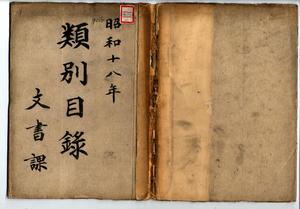 昭和十八年
類別目錄
文書課